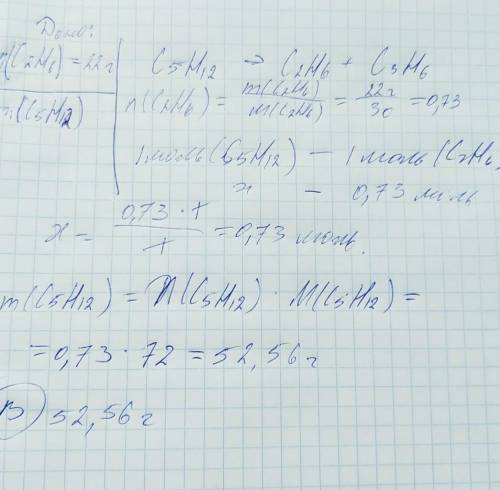 Дано:
m(C2H6) = 22г
m(C5H12)
C5H12 → C2H6 + C3H6
n(C2H6) = m(C2H6)/M(C2H6) = 22г/30 = 0,73
1 моль (C5H12) — 1 моль (C2H6)
x — 0,73 моль
x = 0,73 · 1/1 = 0,73 моль.
m(C5H12) = n(C5H12) · M(C5H12) =
= 0,73 · 72 = 52,56 г
В) 52,56 г